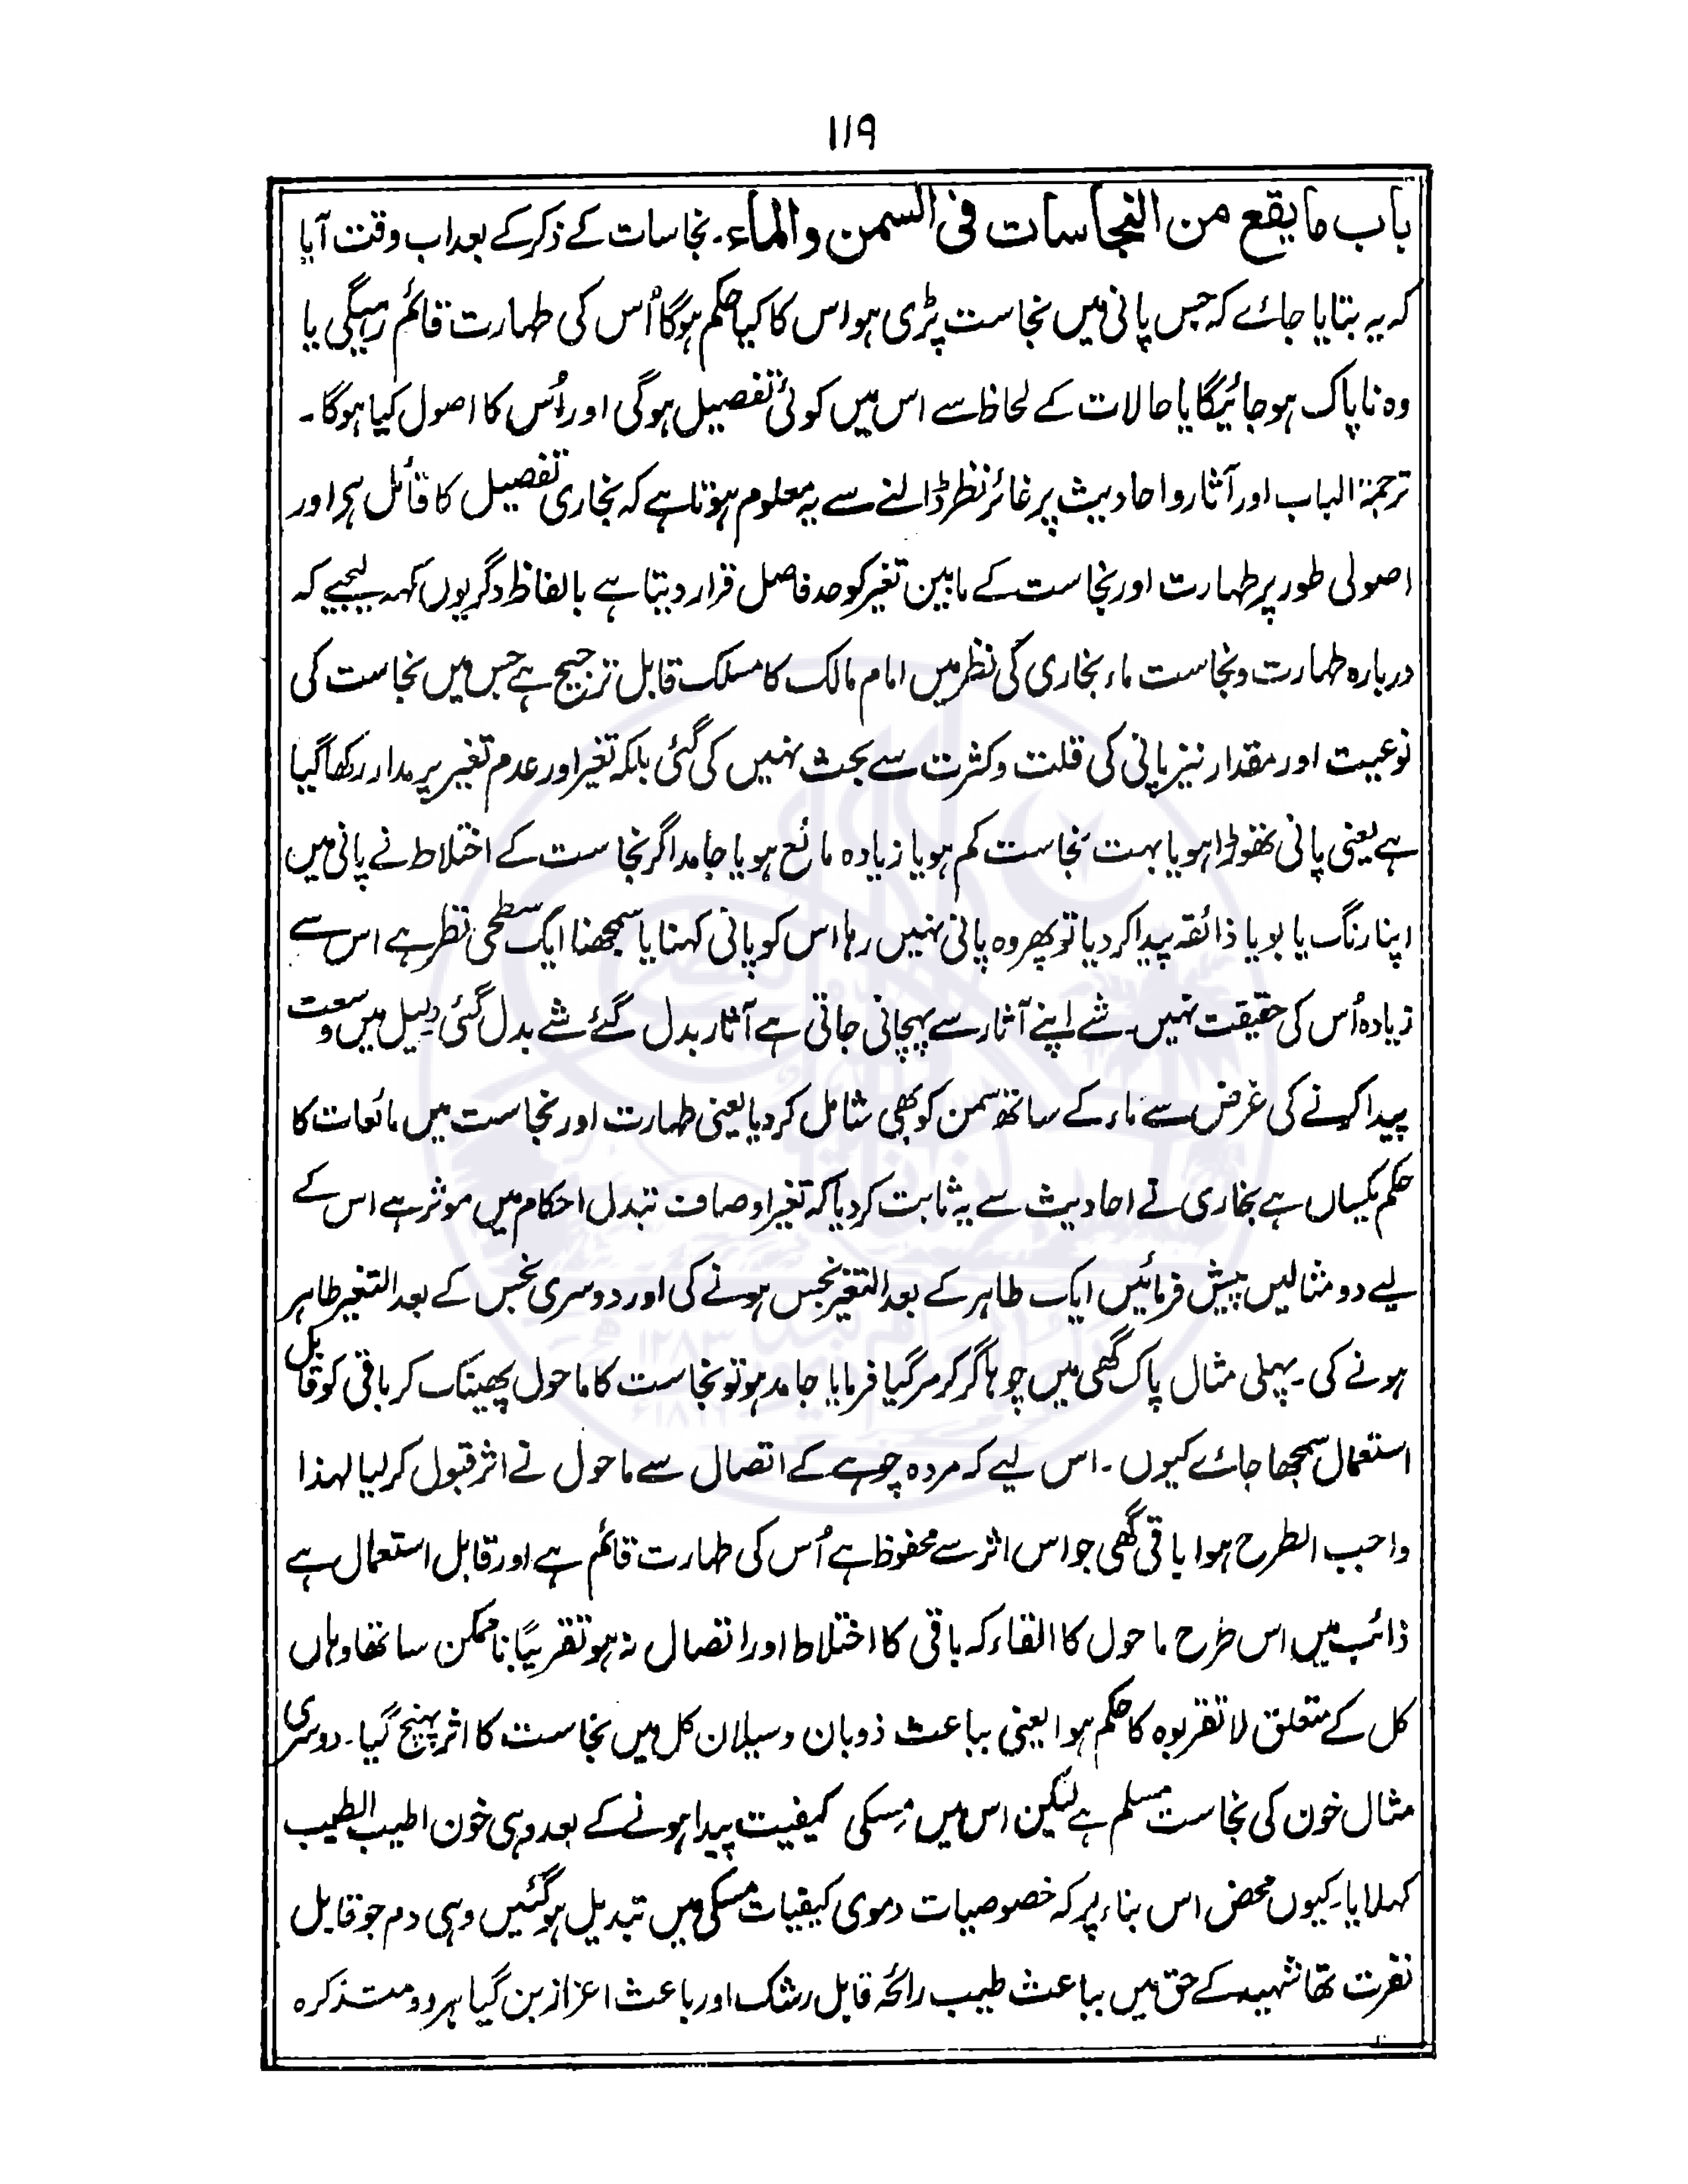 ۱۱۹
باب ما یقع من النجاسات فی السمن والماء۔ نجاسات کے ذکر کے بعد اب وقت آیا
کہ یہ بتایا جائے کہ جس پانی میں نجاست پڑی ہو اس کا کیا حکم ہوگا اُس کی طہارت قائم رہیگی یا
وہ ناپاک ہوجائیگا یا حالات کے لحاظ سے اس میں کوئی تفصیل ہوگی اور اُس کا اصول کیا ہوگا۔
ترجمۃ الباب اور آثار و احادیث پر غائر نظر ڈالنے سے یہ معلوم ہوتا ہے کہ بخاری تفصیل کا قائل ہے اور
اصولی طور پر طہارت اور نجاست کے مابین تغیر کو حد فاصل قرار دیتا ہے بالفاظ دگر یوں کہہ لیجیے کہ
دربارہ طہارت و نجاست ماء بخاری کی نظر میں امام مالک کا مسلک قابل ترجیح ہے جس میں نجاست کی
نوعیت اور مقدار نیز پانی کی قلت و کثرت سے بحث نہیں کی گئی بلکہ تغیر اور عدم تغیر پر مدار رکھا گیا
ہے یعنی پانی تھوڑا ہو یا بہت نجاست کم ہو یا زیادہ مائع ہو یا جامد اگر نجاست کے اختلاط نے پانی میں
اپنا رنگ یا بو یا ذائقہ پیدا کردیا تو پھر وہ پانی نہیں رہا اس کو پانی کہنا یا سمجھنا ایک سطحی نظر ہے اس سے
زیادہ اُس کی حقیقت نہیں۔ شے اپنے آثار سے پہچانی جاتی ہے آثار بدل گئے شے بدل گئی دلیل میں وسعت
پیدا کرنے کی غرض سے ماء کے ساتھ سمن کو بھی شامل کردیا یعنی طہارت اور نجاست میں مائعات کا
حکم یکساں ہے بخاری نے احادیث سے یہ ثابت کردیا کہ تغیر اوصاف تبدل احکام میں موثر ہے اس کے
لیے دو مثالیں پیش فرمائیں ایک طاہر کے بعد التغیر نجس ہونے کی اور دوسری نجس کے بعد التغیر طاہر
ہونے کی۔ پہلی مثال پاک گھی میں چوہا گر کر مر گیا فرمایا جامد ہو تو نجاست کا ماحول پھینک کر باقی کو قابل
استعمال سمجھا جائے کیوں۔ اس لیے کہ مردہ چوہے کے اتصال سے ماحول نے اثر قبول کرلیا لہذا
واجب الطرح ہوا باقی گھی جو اس اثر سے محفوظ ہے اُس کی طہارت قائم ہے اور قابل استعمال ہے
ذائب میں اس طرح ماحول کا القاء کہ باقی کا اختلاط اور اتصال نہ ہو تقریبًا ناممکن سا تھا وہاں
کل کے متعلق لا تقربوہ کا حکم ہوا یعنی بباعث ذوبان و سیلان کل میں نجاست کا اثر پہنچ گیا۔ دوسری
مثال خون کی نجاست مسلم ہے لیکن اس میں مِسکی کیفیت پیدا ہونے کے بعد وہی خون اطیب الطیب
کہلایا۔ کیوں محض اس بناء پر کہ خصوصیات دموی کیفیات مسکی میں تبدیل ہوگئیں وہی دم جو قابل
نفرت تھا شہید کے حق میں بباعث طیب رائحہ قابل رشک اور باعث اعزاز بن گیا ہر دو متذکرہ